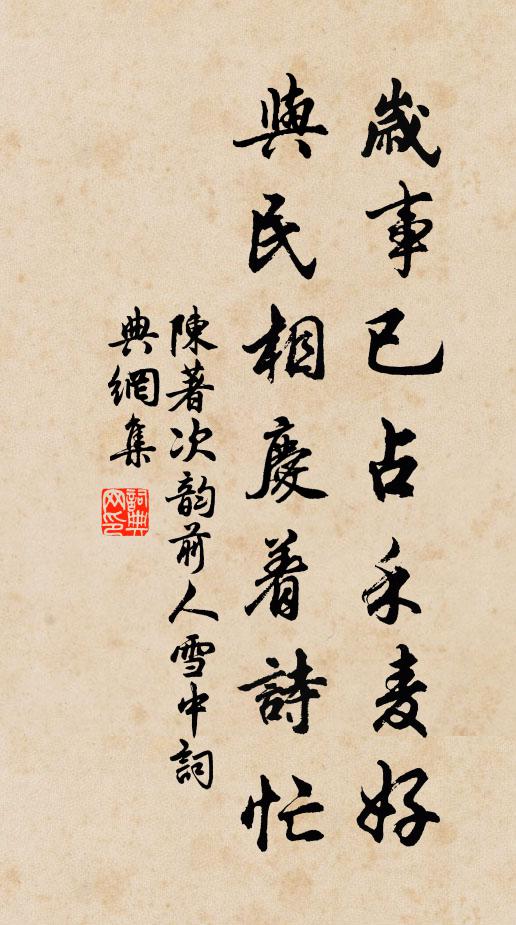 歲事已占禾麥好
與民相慶着詩忙
陳著次韵前人雪中詞
典網集
詞典网印